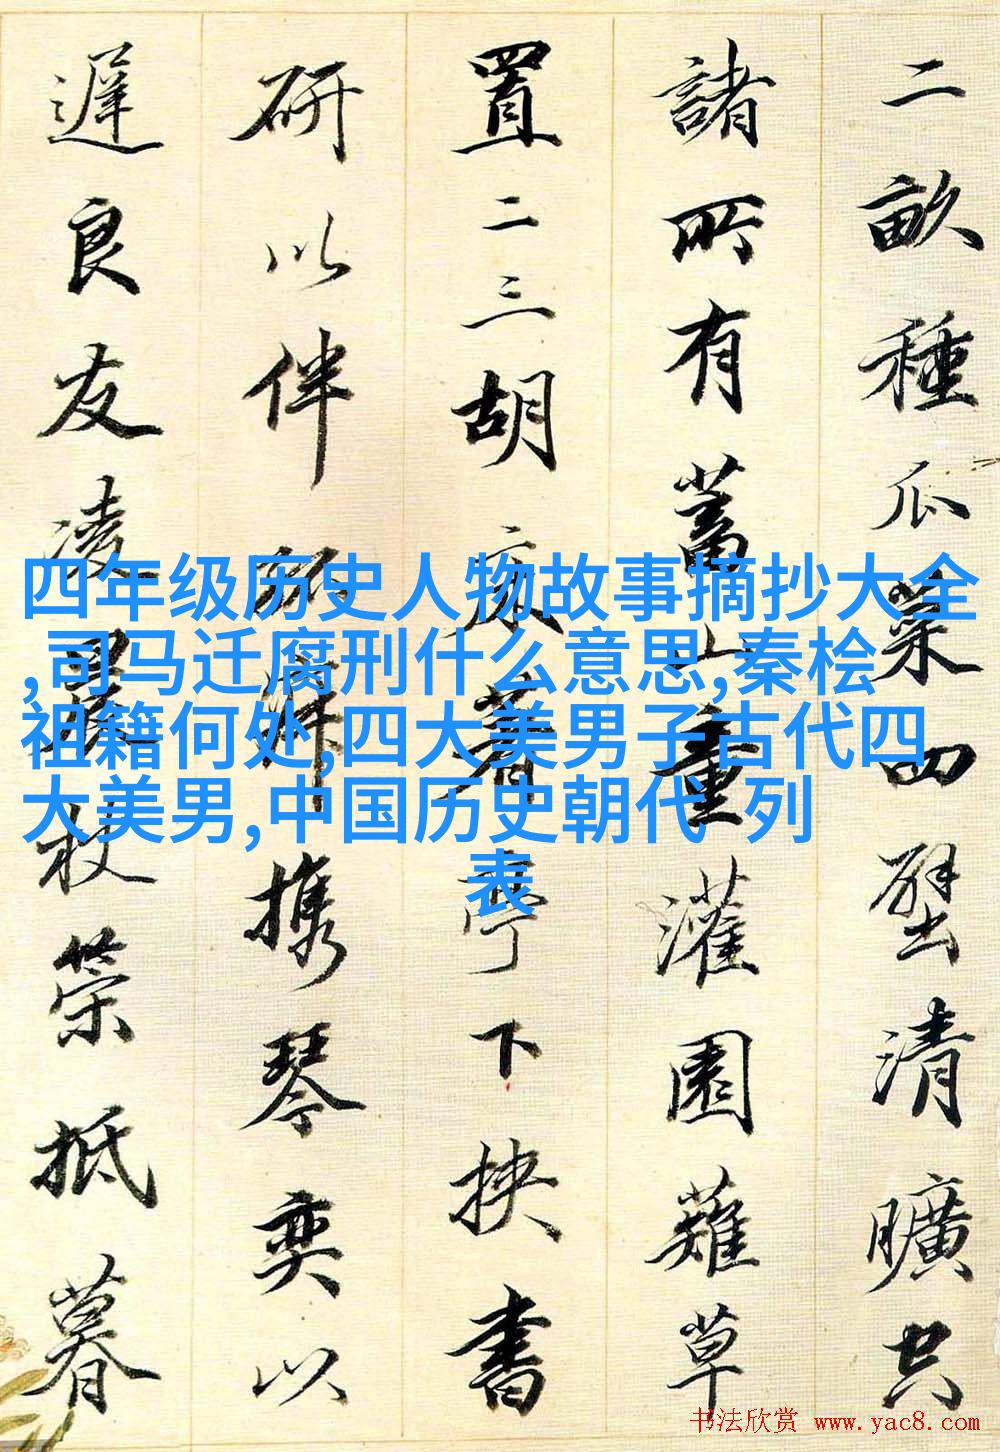 二畝種瓜菜四壁清曠空
諸所有蓄山童灌園薙草
置二三胡床著亭下挟書
研以伴孤寂携琴奕以
遲良友凌晨杖策抵暮
四年级历史人物故事摘抄大全
,司马迁腐刑什么意思,秦桧
祖籍何处,四大美男子古代四
大美男,中国历史朝代 列
表
书法欣赏 www.yac8.com